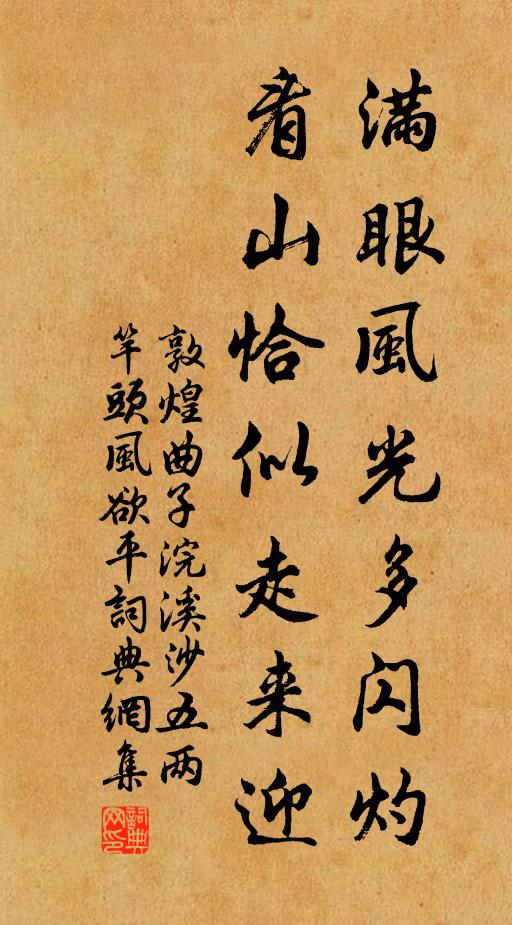 满眼風光多闪灼
看山恰似走来迎
敦煌曲子浣溪沙五两
竿頭風欲平詞典網集
詞典
网印